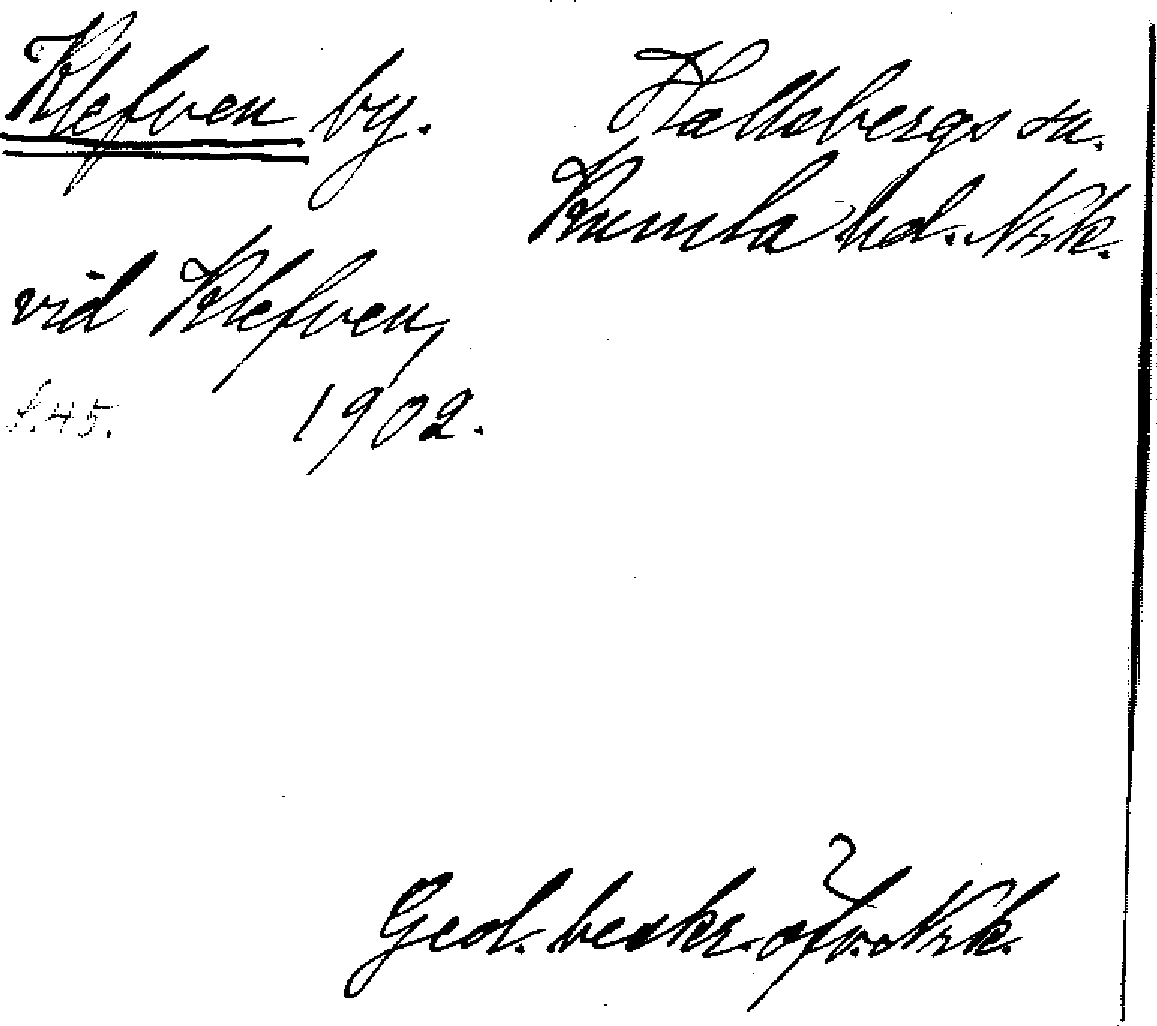 Klefven by.
Hallsbergs sn.
Kumla hd. Nrk.
vid Klefven,
s. 45. 1902.
Geol. beskr. öfv. Nrk.